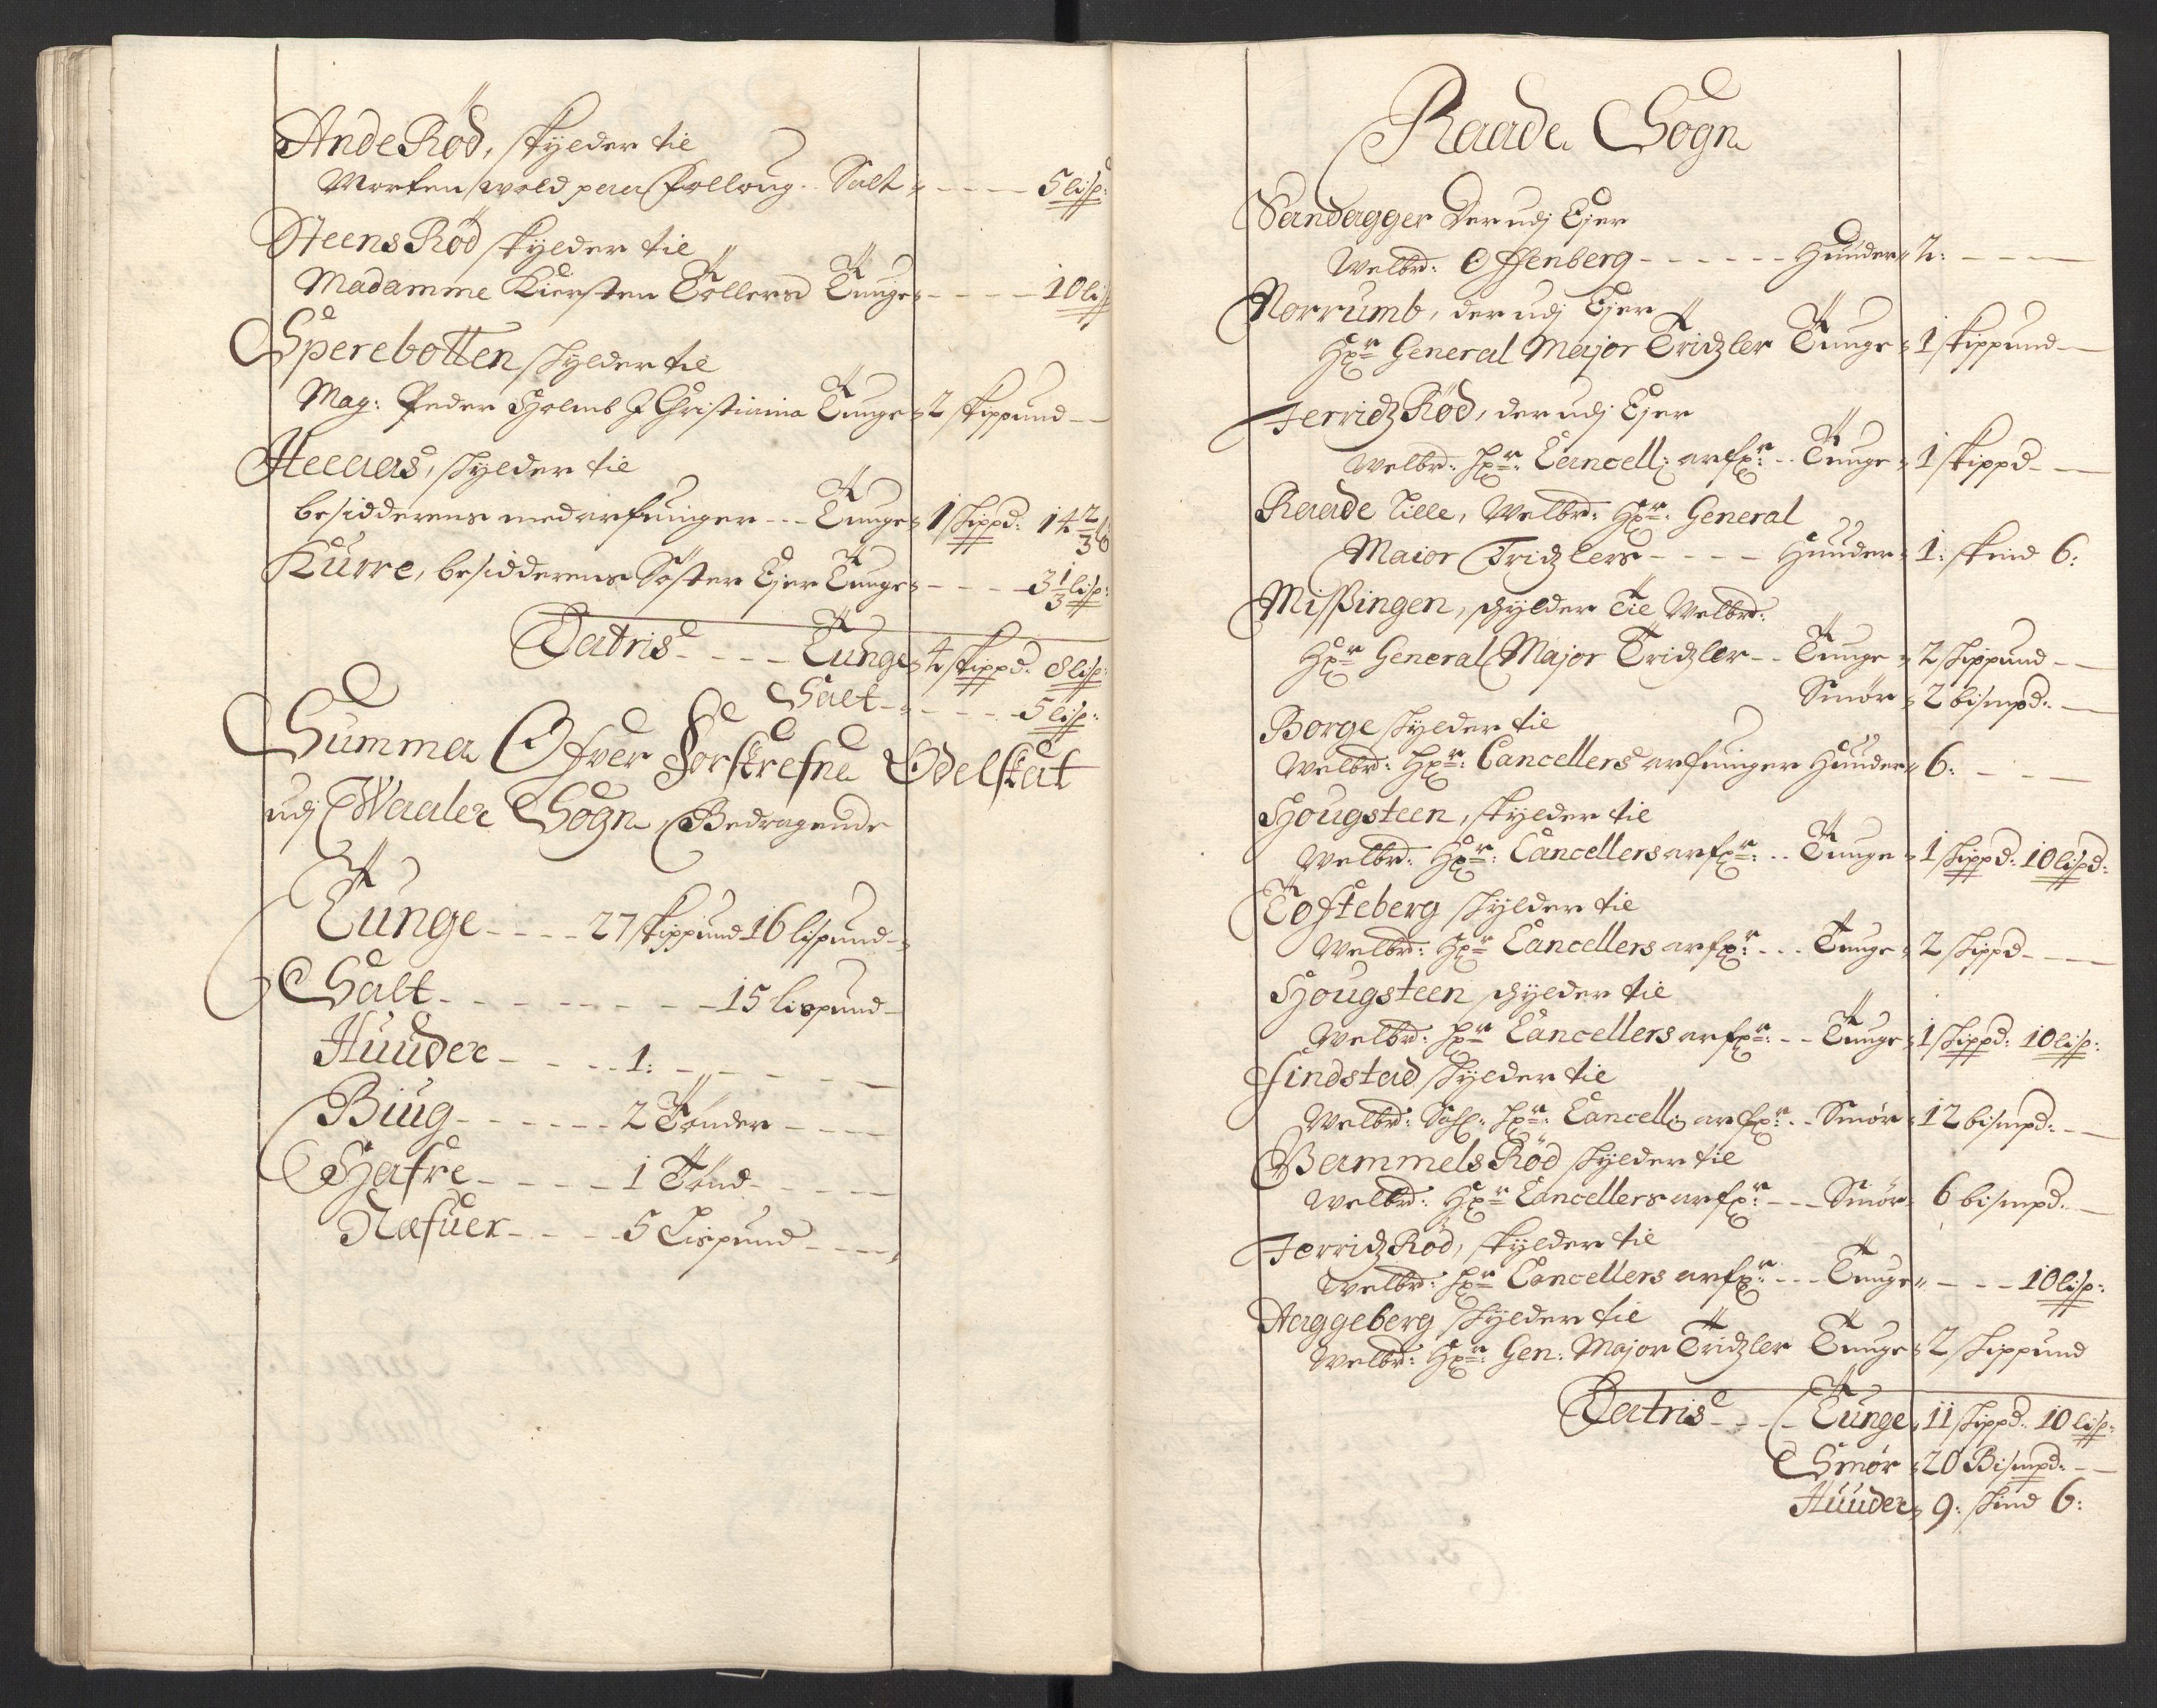 AndeRöd, skylder til
Morten wold paa Folloug.. Salt " - - - - 5 lisp:
SteensRöd skylder til
Madamme Kiersten Tollers Tunge " - - - - 10 lisp
Sperebotten skylder til
Mag: Peder Holmb J Christiania Tunge " 2 skippund - -
Heeaas, skylder til
besidderens medarfuinger - - - Tunge " 1 skippd: 14 2/3 lb
Kurre, besidderens Söster Ejer Tunge " - - - - 3 1/3 lisp:
Latris - - - - Tunge " 4 skippd. 8 lisp:
Salt - " - - - - 5 lisp:
Summa Ofver Forskrefne Odelskat
udj Waaler Sogn, Bedragende
Tunge - - - - 27 skippund 16 lispund - "
Salt - - - - - - - - - 15 lispund -
Huuder - - - - 1: - - - - -
Biug - - - - - - 2 Tönder - - - -
Hafre - - - - - 1 Tönd - - - -
Næfuer - - - - 5 Lispund - - - -
Raade Sogn
Sandagger Der udj Ejer
Welbr: Offenberg - - - - - - Huuder " 2: - - - -
Norrumb, der udj Ejer
Hr: General Major Tridzler Tunge " 1 skippund -
JerridzRöd, der udj Ejer
Welbr: Hr: Cancell: arfr: - - Tunge " 1 skippd - -
Raade Lille, Welbr: Hr: General
Maior Tridzlers - - - - Huuder " 1: skind 6:
Missingen, skylder Til Welbr:
Hr General Major Tridzler - - Tunge " 2 skippund - -
Smör " 2 bismpd: -
Borge skylder til
Welbr: Hr: Cancellers arfuinger Huuder " 6: - - -
Hougsteen, skylder til
Welbr: Hr: Cancellers arfr: - - Tunge " 1 skippd: 10 lispd:
Tofteberg skylder til
Welbr: Hr Cancellers arfr: - - - Tunge " 2 skippd - - - -
Hougsteen skylder til
Welbr: Hr Cancellers arfr: - - Tunge " 1 skippd: 10 lisp:
Findstad skylder til
Welbr: Sahl: Hr: Cancell: arfr: - - Smör " 12 bismpd: - -
BammelsRöd skylder til
Welbr: Hr Cancellers arfr: - - - Smör " 6 bismpd: -
JerridzRöd, skylder til
Welbr: Hr Cancellers arfr: - - - Tunge " - - - 10 lisp:
Haggeberg skylder til
Welbr: Hr: Gen: Major Tridzler Tunge " 2 skippund
Latris - - - Tunge " 11 skippd: 10 lisp:
Smör " 20 Bismpd: - -
Huuder " 9: skind 6: